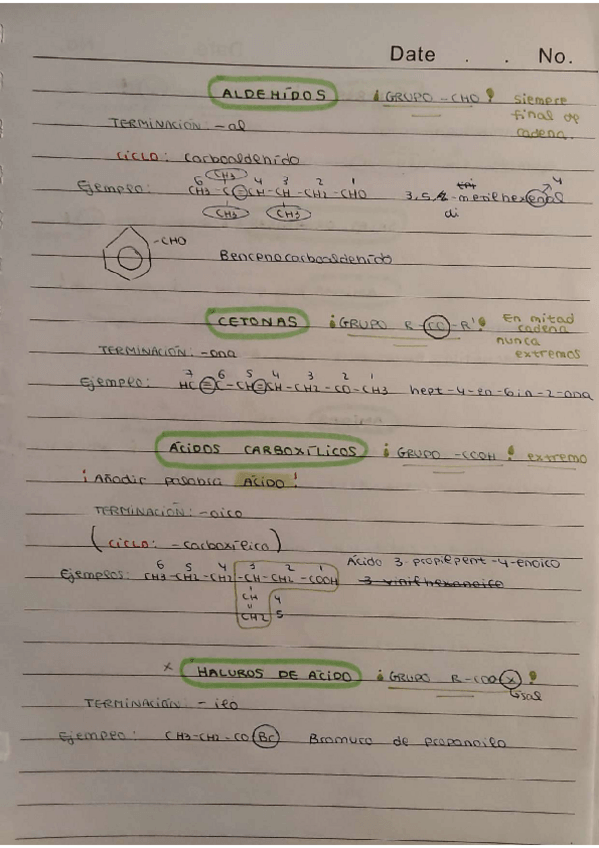 Date . . No.
ALDEHÍDOS ¡GRUPO -CHO! siempre
final de
cadena.
TERMINACIÓN: -al
CICLO: carboaldehído
CH3
Ejemplo: 6 4 3 2 1 4
CH3-C=CH-CH-CH2-CHO 3,5, -metilhexenal
CH3 CH3 di
-CHO Bencenocarboaldehído
CETONAS ¡GRUPO R-CO-R'! En mitad
cadena
nunca
extremos
TERMINACIÓN: -ona
7 6 5 4 3 2 1
Ejemplo: HC≡C-CH=CH-CH2-CO-CH3 hept-4-en-6in-2-ona
ÁCIDOS CARBOXÍLICOS ¡GRUPO -COOH! extremo
¡Añadir palabra ÁCIDO!
TERMINACIÓN: -oico
(CICLO: -carboxílico)
6 5 4 3 2 1 Ácido 3-propilpent-4-enoico
Ejemplos: CH3-CH2-CH2-CH-CH2-COOH 3-vinilhexanoico
CH 4
CH2 5
x HALUROS DE ÁCIDO ¡GRUPO R-COX!
sal
TERMINACIÓN: -ilo
Ejemplo: CH3-CH2-CO Br Bromuro de propanoilo